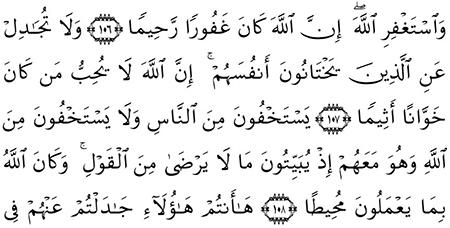 وَٱسْتَغْفِرِ ٱللَّهَۖ إِنَّ ٱللَّهَ كَانَ غَفُورًا رَّحِيمًا ۝١٠٦ وَلَا تُجَٰدِلْ
عَنِ ٱلَّذِينَ يَخْتَانُونَ أَنفُسَهُمْۚ إِنَّ ٱللَّهَ لَا يُحِبُّ مَن كَانَ
خَوَّانًا أَثِيمًا ۝١٠٧ يَسْتَخْفُونَ مِنَ ٱلنَّاسِ وَلَا يَسْتَخْفُونَ مِنَ
ٱللَّهِ وَهُوَ مَعَهُمْ إِذْ يُبَيِّتُونَ مَا لَا يَرْضَىٰ مِنَ ٱلْقَوْلِۚ وَكَانَ ٱللَّهُ
بِمَا يَعْمَلُونَ مُحِيطًا ۝١٠٨ هَٰٓأَنتُمْ هَٰٓؤُلَآءِ جَٰدَلْتُمْ عَنْهُمْ فِى